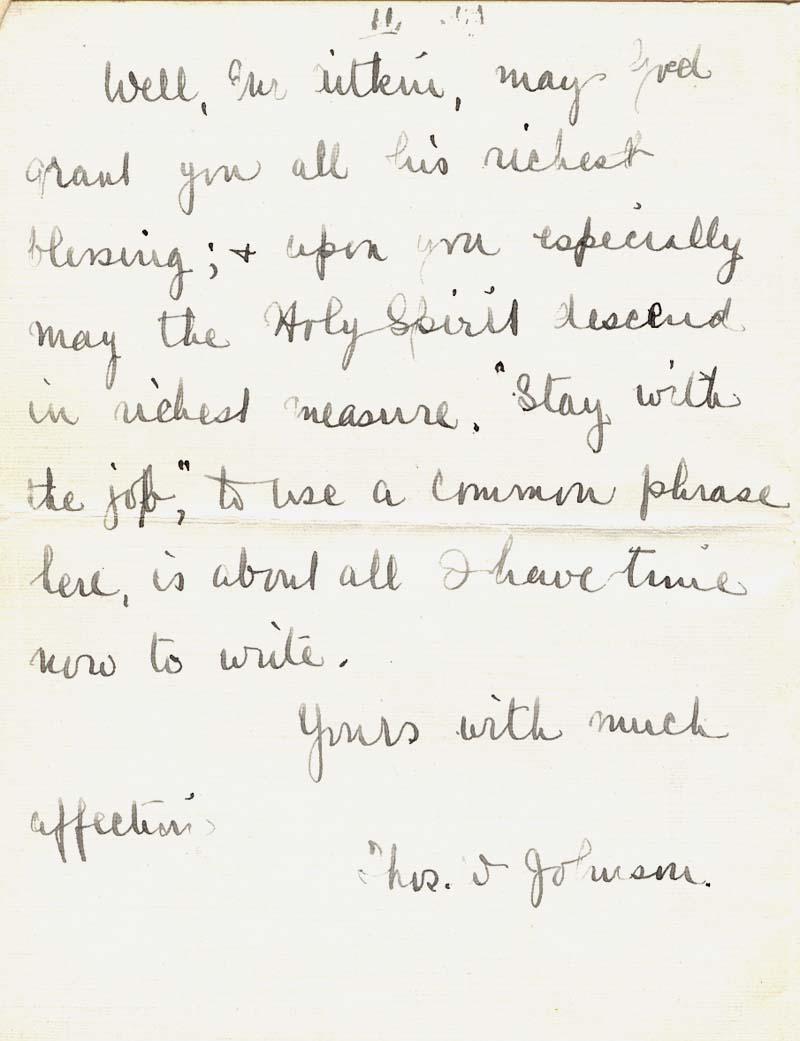 11.
Well, Mr Titkin, may God
grant you all his richest
blessing; + upon you especially
may the Holy Spirit descend
in richest measure. "Stay with
the job", to use a common phrase
here, is about all I have time
now to write.
Yours with much
affection
Thos. D Johnson.